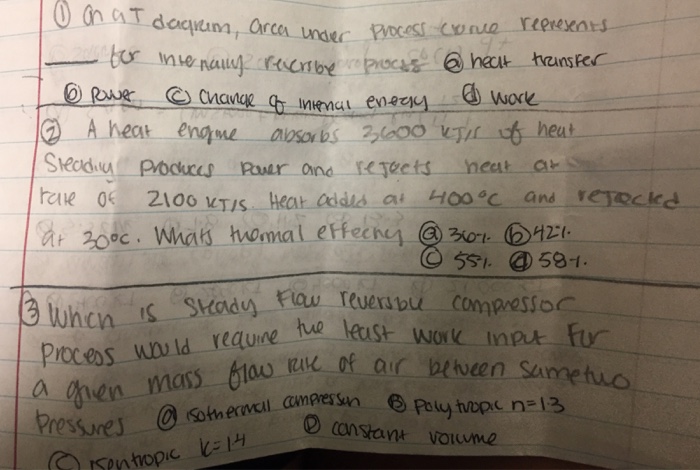 ① On a T diagram, area under process curve represents
____ for internally reversible process ⓐ heat transfer
ⓑ Power ⓒ Change of internal energy ⓓ work
② A heat engine absorbs 3600 KJ/s of heat
Steadily produces power and rejects heat at
rate of 2100 KJ/s. Heat added at 400°C and rejected
at 30°C. Whats thermal effecncy ⓐ 36% ⓑ 42%
ⓒ 55% ⓓ 58%
③ Which is Steady flow reversible compressor
process would require the least work input for
a given mass flow rate of air between same two
Pressures ⓐ isothermal compression ⓑ polytropic n=1.3
ⓒ isentropic k=1.4 ⓓ constant volume